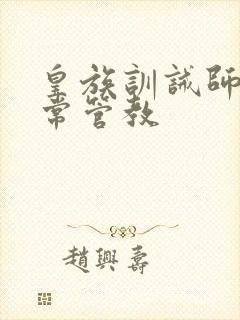 皇族訓誡師
常管教
趙興壽